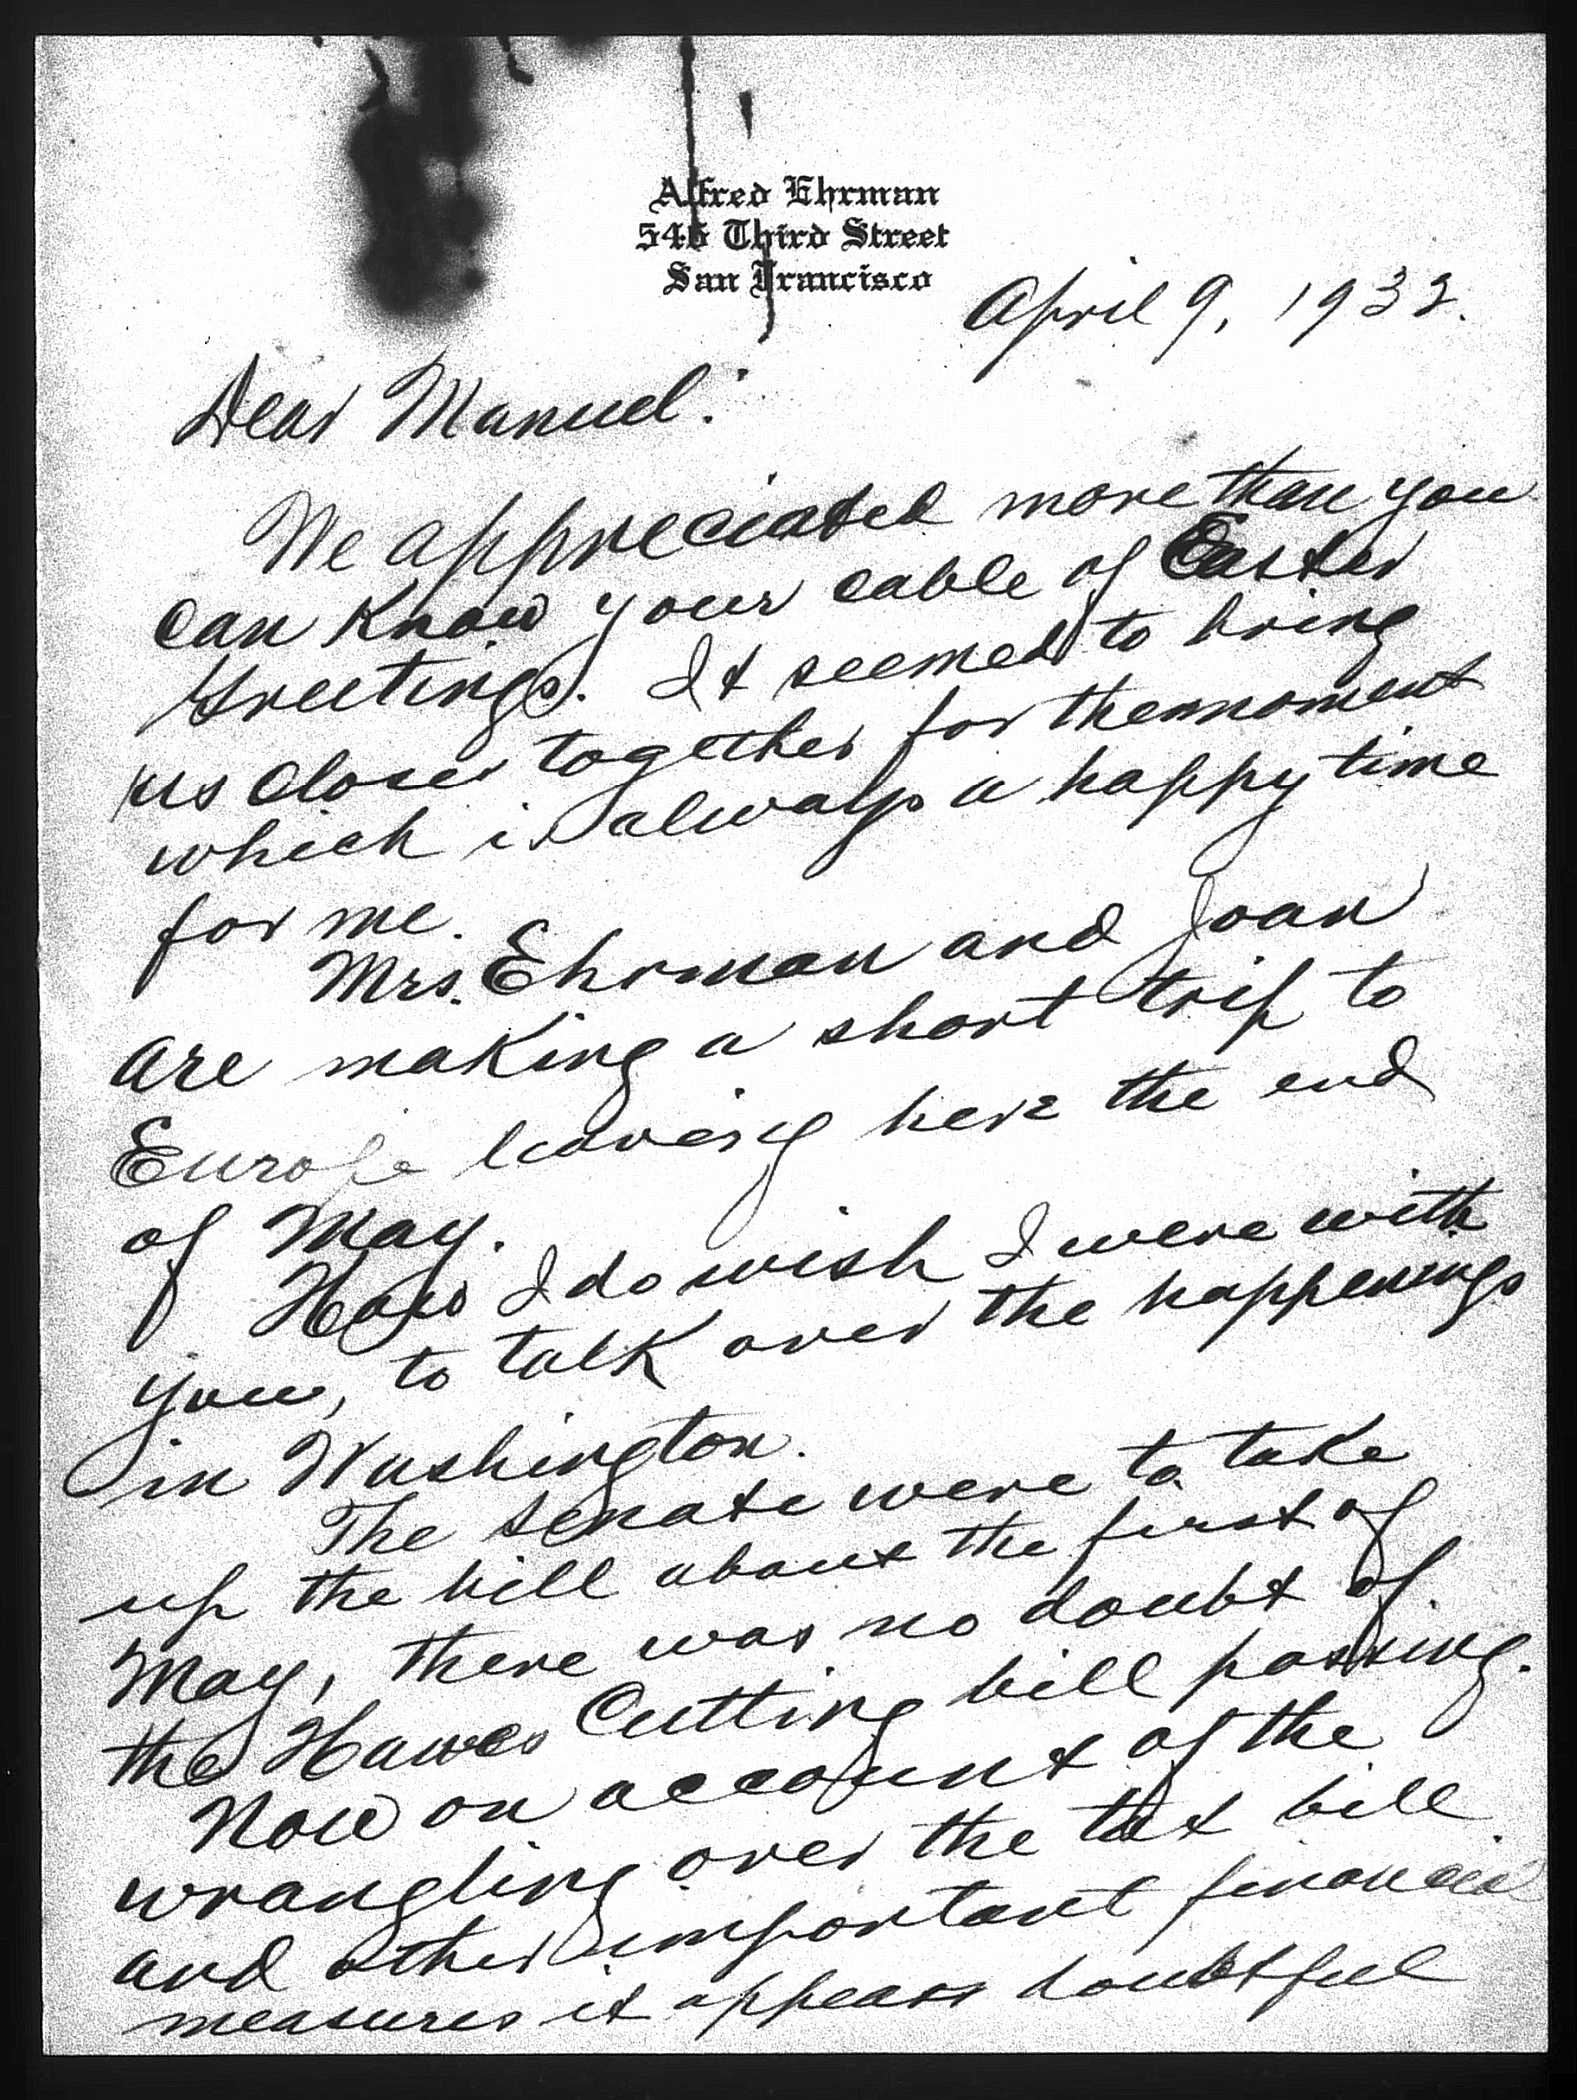 Alfred Ehrman
545 Third Street
San Francisco
April 9, 1932.
Dear Manuel:
We appreciated more than you
can know your cable of Easter
Greetings. It seemed to bring
us closer together for the moment
which is always a happy time
for me.
Mrs. Ehrman and Joan
are making a short trip to
Europe leaving here the end
of May.
How I do wish I were with
you, to talk over the happenings
in Washington.
The Senate were to take
up the bill about the first of
May, there was no doubt of
the Hawes Cutting bill passing.
Now on account of the
wrangling over the tax bill
and other important financial
measures it appears doubtful